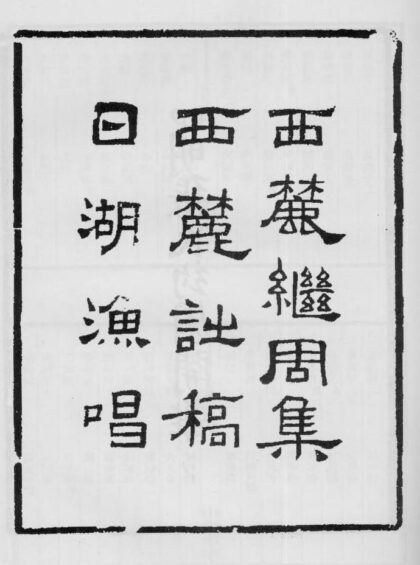 西麓繼周集
西麓詩稿
日湖漁唱